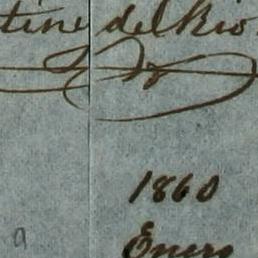 tine del Rio.
1860
a
Enero